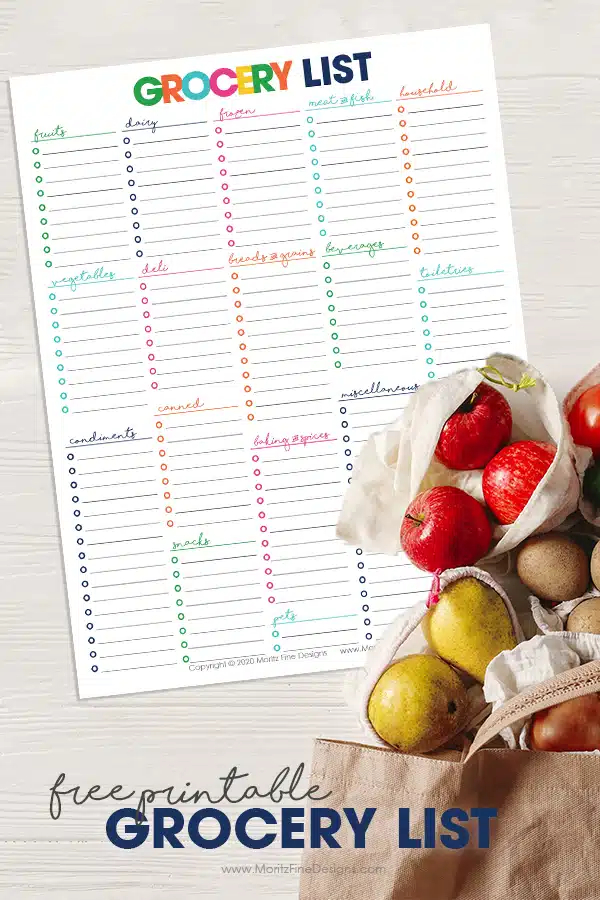 GROCERY LIST
fruits
dairy
frozen
meat & fish
household
vegetables
deli
breads & grains
beverages
toiletries
condiments
canned
baking & spices
miscellaneous
snacks
pets
Copyright © 2020 Moritz Fine Designs
www.Mor
free printable
GROCERY LIST
www.MoritzFineDesigns.com